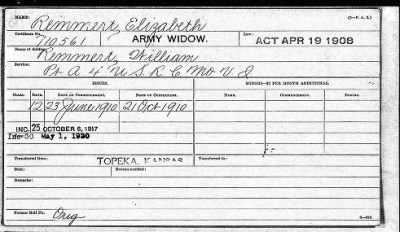 NAME: Remmert, Elizabeth (3-F. A. 1.)
Certificate No. 710561 ARMY WIDOW. LAW: ACT APR 19 1908
Name of Soldier: Remmert, William
Service: Pt A 4" U S R C Mo V I
ISSUE. MINORS—$2 PER MONTH ADDITIONAL.
CLASS. RATE. DATE OF COMMENCEMENT. DATE OF CERTIFICATE. NAME. COMMENCEMENT. ENDING.
12 23 June 1910 21 Oct 1910
INC. 25 OCTOBER 6, 1917
30 May 1, 1920
Transferred from TOPEKA, KANSAS Transferred to
Died: Bureau notified:
Remarks:
Former Roll No. Orig